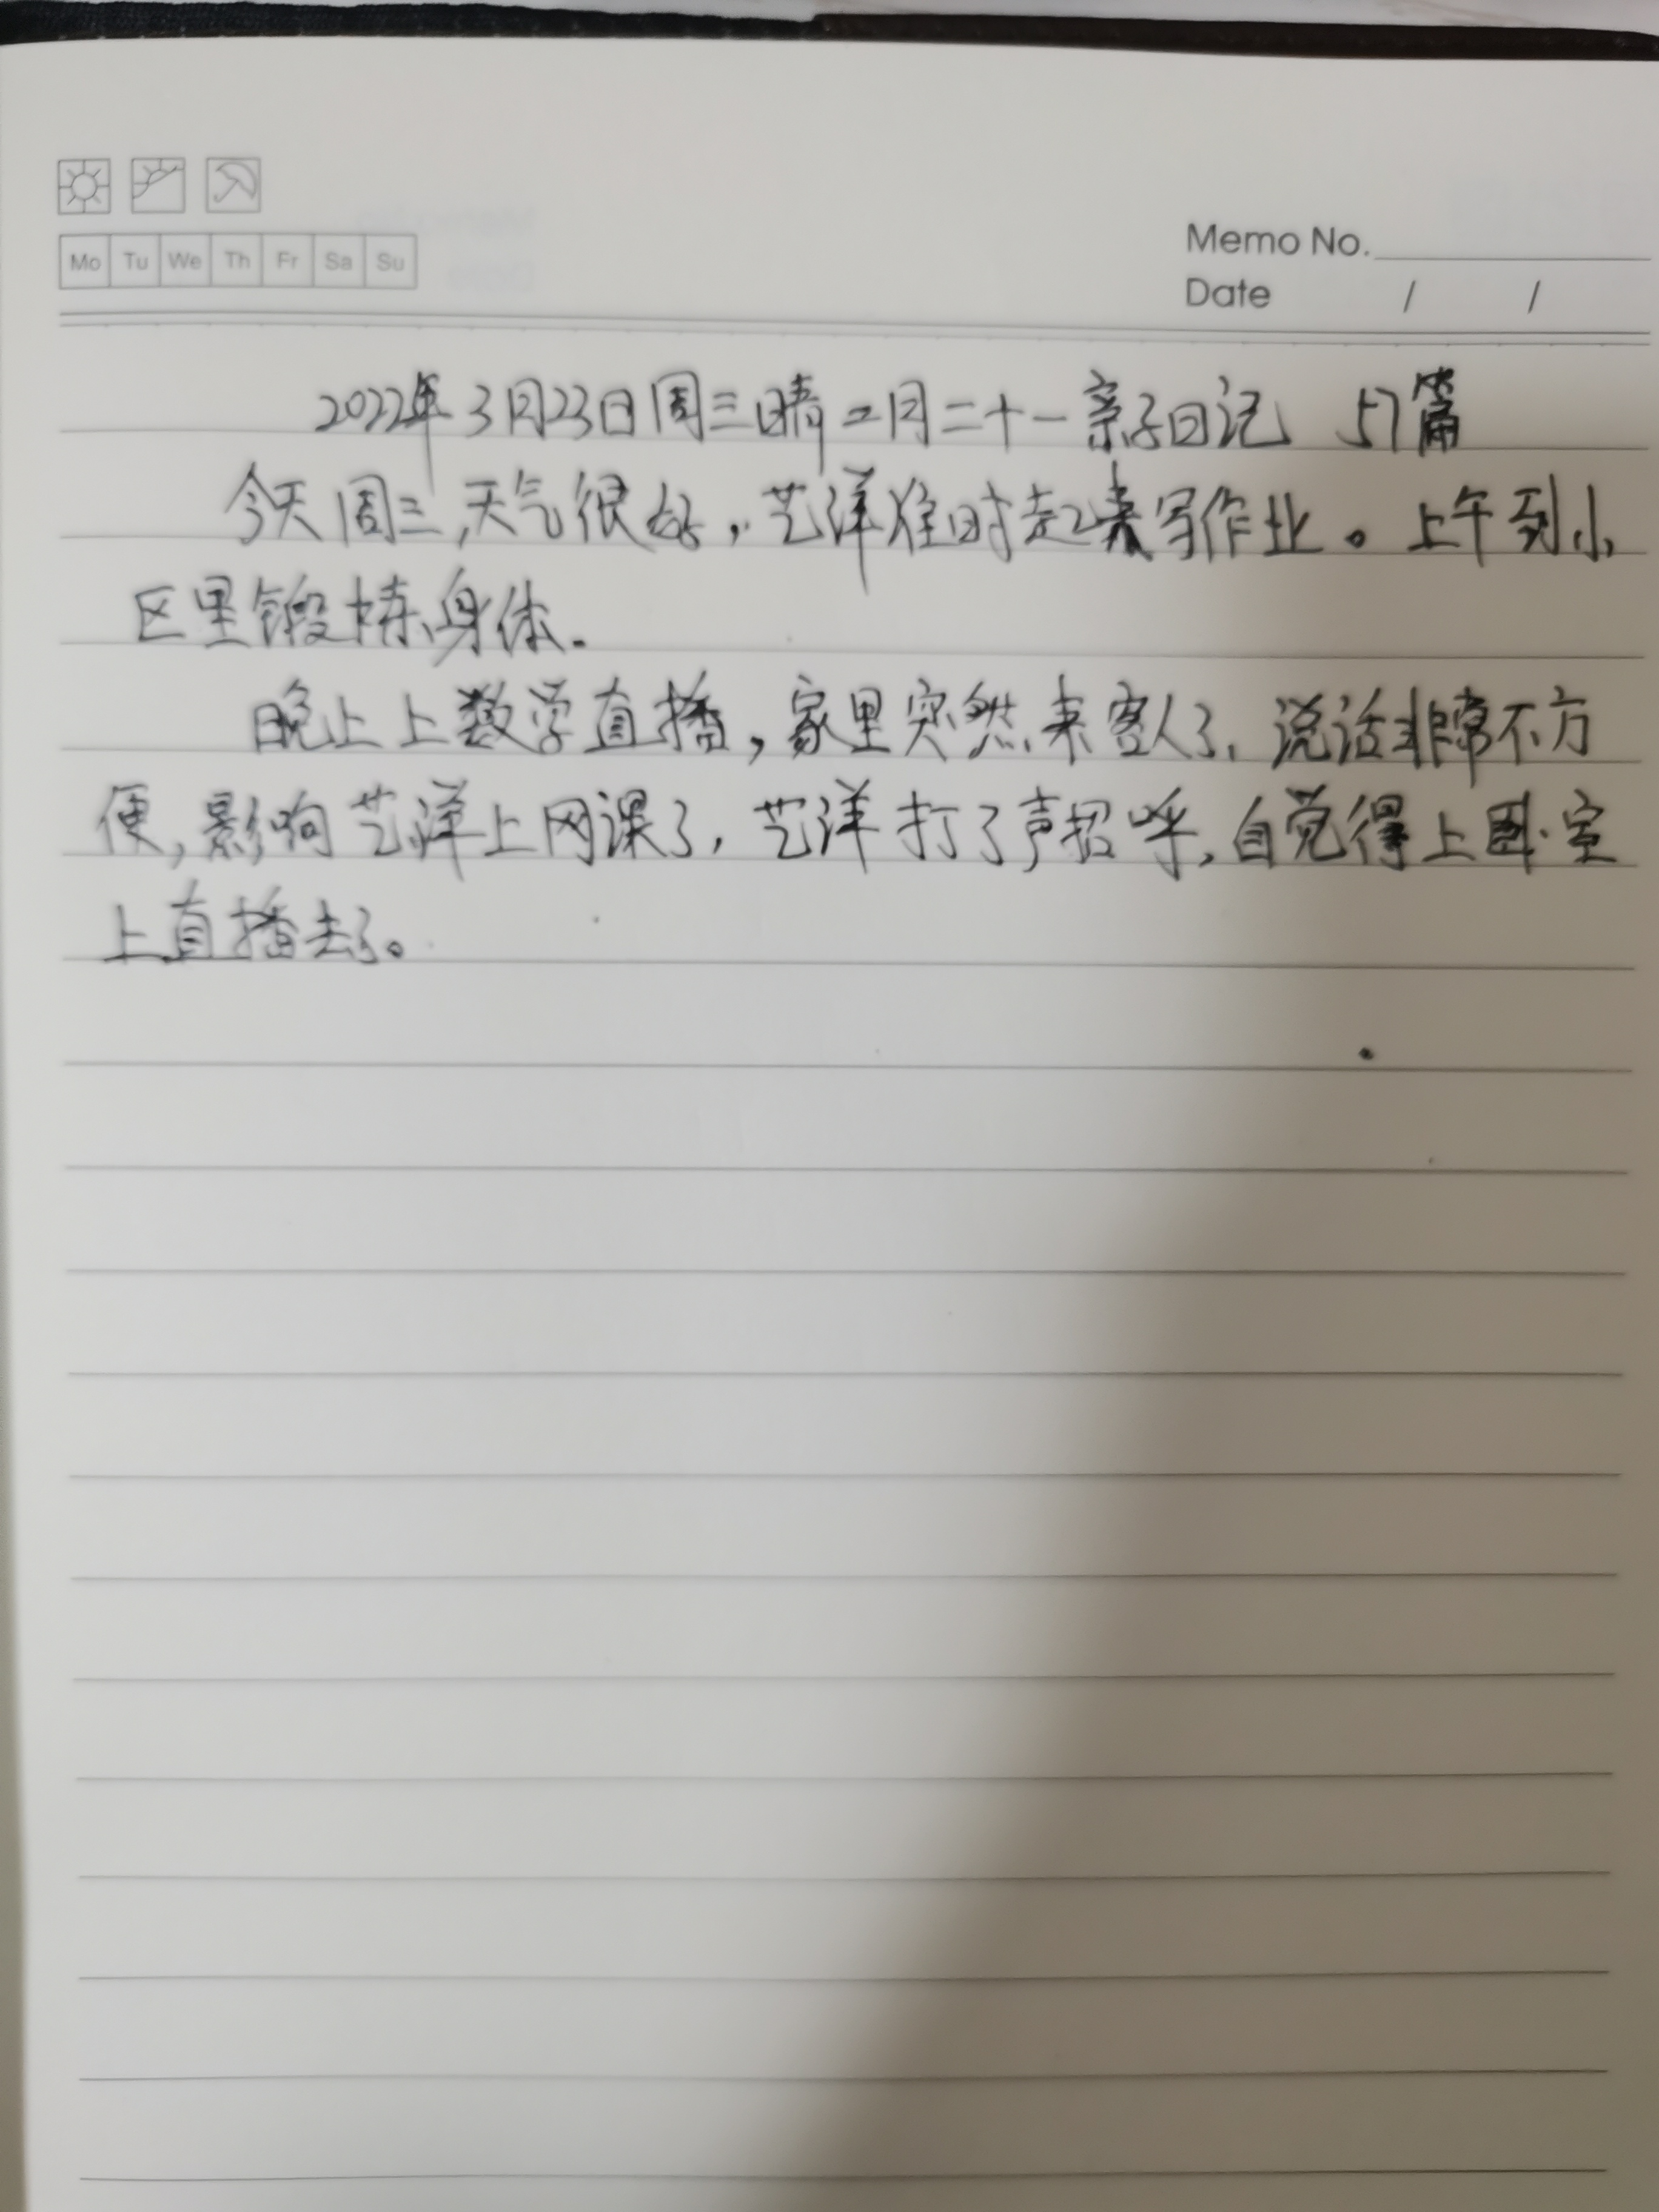 Mo Tu We Th Fr Sa Su
Memo No.
Date / /
2022年3月23日周三晴二月二十一亲子日记 57篇
今天周三,天气很好,艺洋准时起来写作业。上午到小
区里锻炼身体.
晚上上数学直播,家里突然来客人了,说话非常不方
便,影响艺洋上网课了,艺洋打了声招呼,自觉得上卧室
上直播去了。